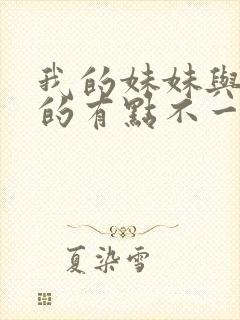 我的妹妹與
的有點不一
夏染雪